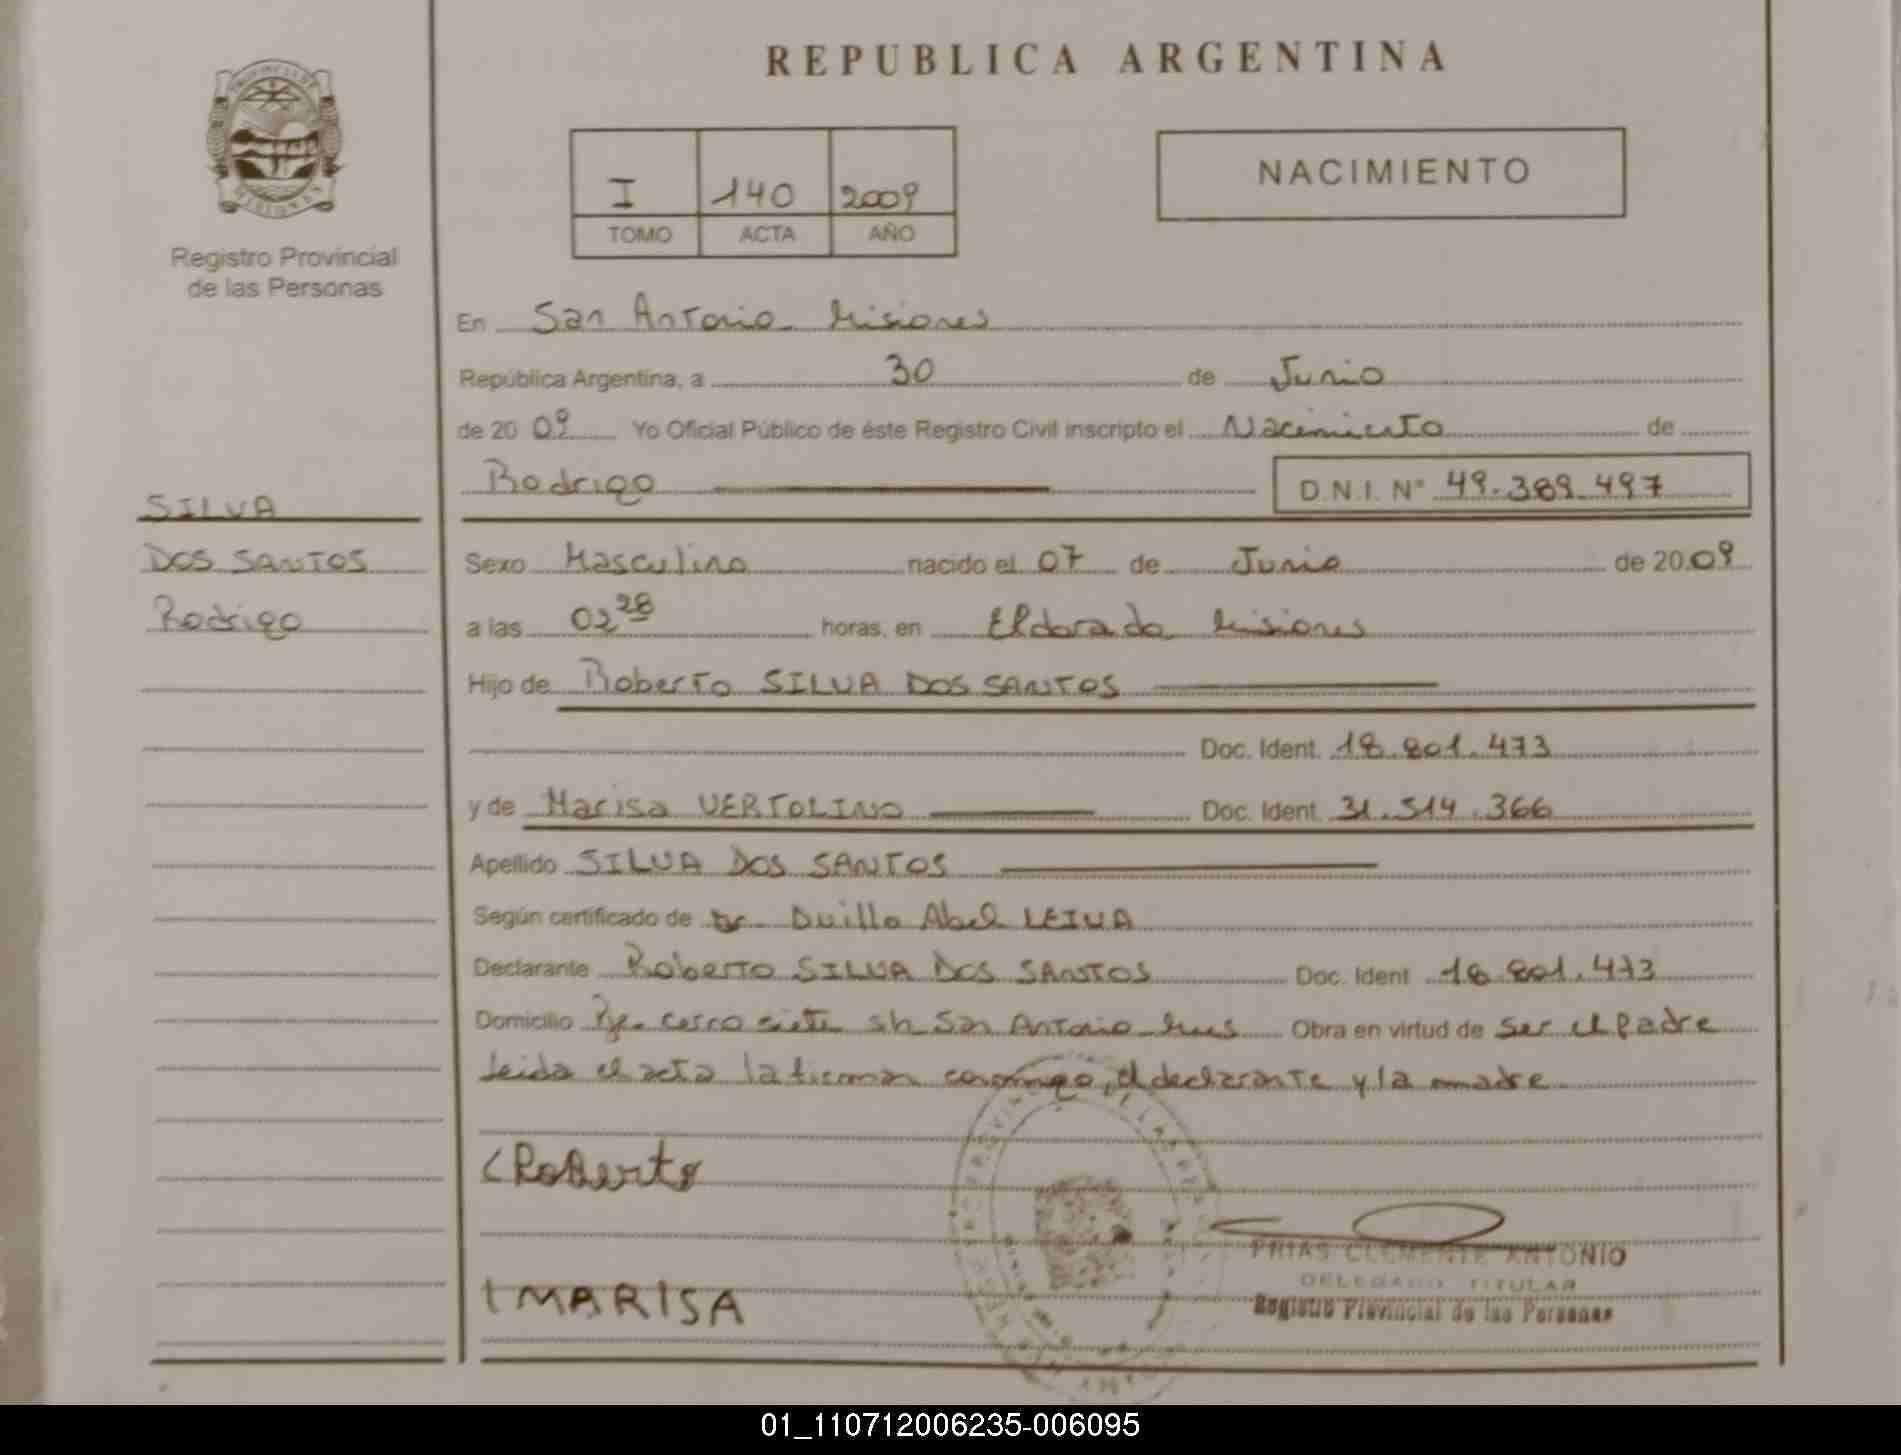 REPUBLICA ARGENTINA
PROVINCIA DE
MISIONES
Registro Provincial
de las Personas
I 140 2009
TOMO ACTA AÑO
NACIMIENTO
En San Antonio Misiones
República Argentina, a 30 de Junio
de 20 09 Yo Oficial Público de éste Registro Civil inscripto el Nacimiento de
Rodrigo D.N.I. N° 49.389.497
SILVA
DOS SANTOS
Rodrigo
Sexo Masculino nacido el 07 de Junio de 20 09
a las 02 28 horas, en Eldorado Misiones
Hijo de Roberto SILVA DOS SANTOS
Doc. Ident. 18.801.473
y de Marisa VERTOLINO Doc. Ident. 31.514.366
Apellido SILVA DOS SANTOS
Según certificado de Dr. Duillo Abel LEIVA
Declarante Roberto SILVA DOS SANTOS Doc. Ident 18.801.473
Domicilio cerro siete s/n San Antonio Mnes Obra en virtud de ser el padre
Leida el acta la firman conmigo, el declarante y la madre
Roberto
MARISA
FRIAS CLEMENTE ANTONIO
DELEGADO TITULAR
Registro Provincial de las Personas
01_110712006235-006095